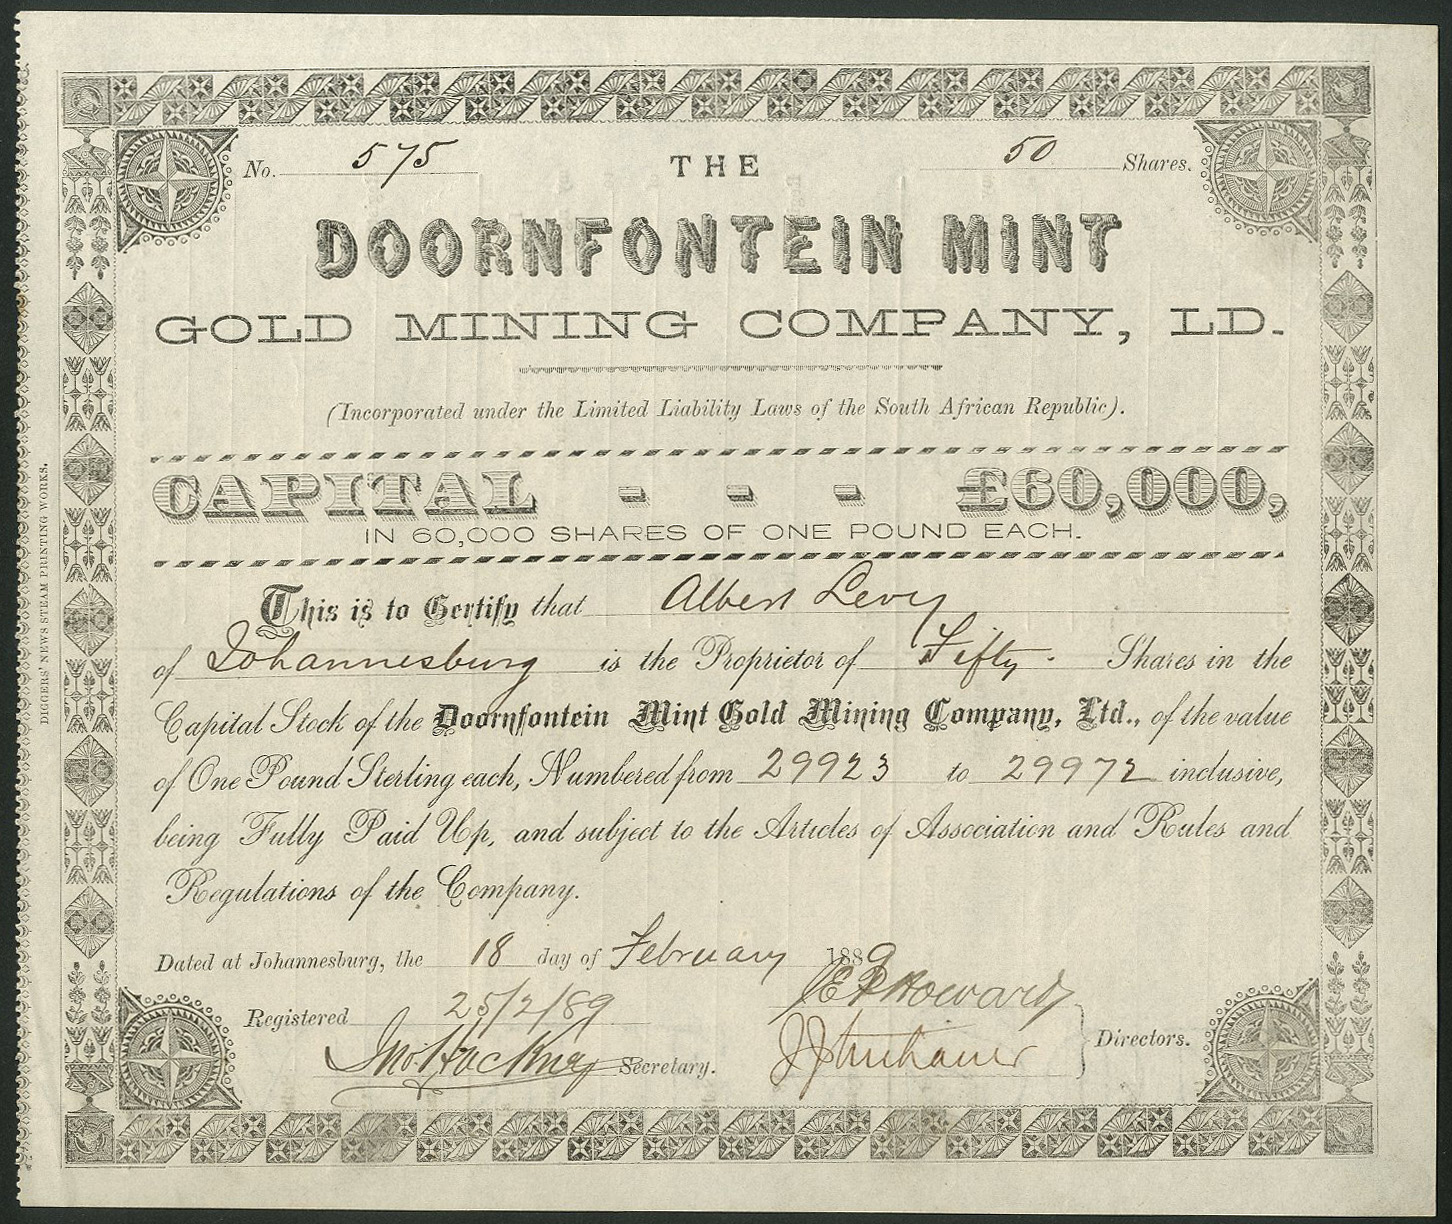 No. 575 THE 50 Shares.
DOORNFONTEIN MINT
GOLD MINING COMPANY, LD.
(Incorporated under the Limited Liability Laws of the South African Republic).
CAPITAL - - - £60,000,
IN 60,000 SHARES OF ONE POUND EACH.
This is to Certify that Albert Levy
of Johannesburg is the Proprietor of Fifty Shares in the
Capital Stock of the Doornfontein Mint Gold Mining Company, Ltd., of the value
of One Pound Sterling each, Numbered from 29923 to 29972 inclusive,
being Fully Paid Up, and subject to the Articles of Association and Rules and
Regulations of the Company.
Dated at Johannesburg, the 18 day of February 1889
Registered 25/2/89
Howard
Secretary.
Directors.
DIGGERS' NEWS STEAM PRINTING WORKS.